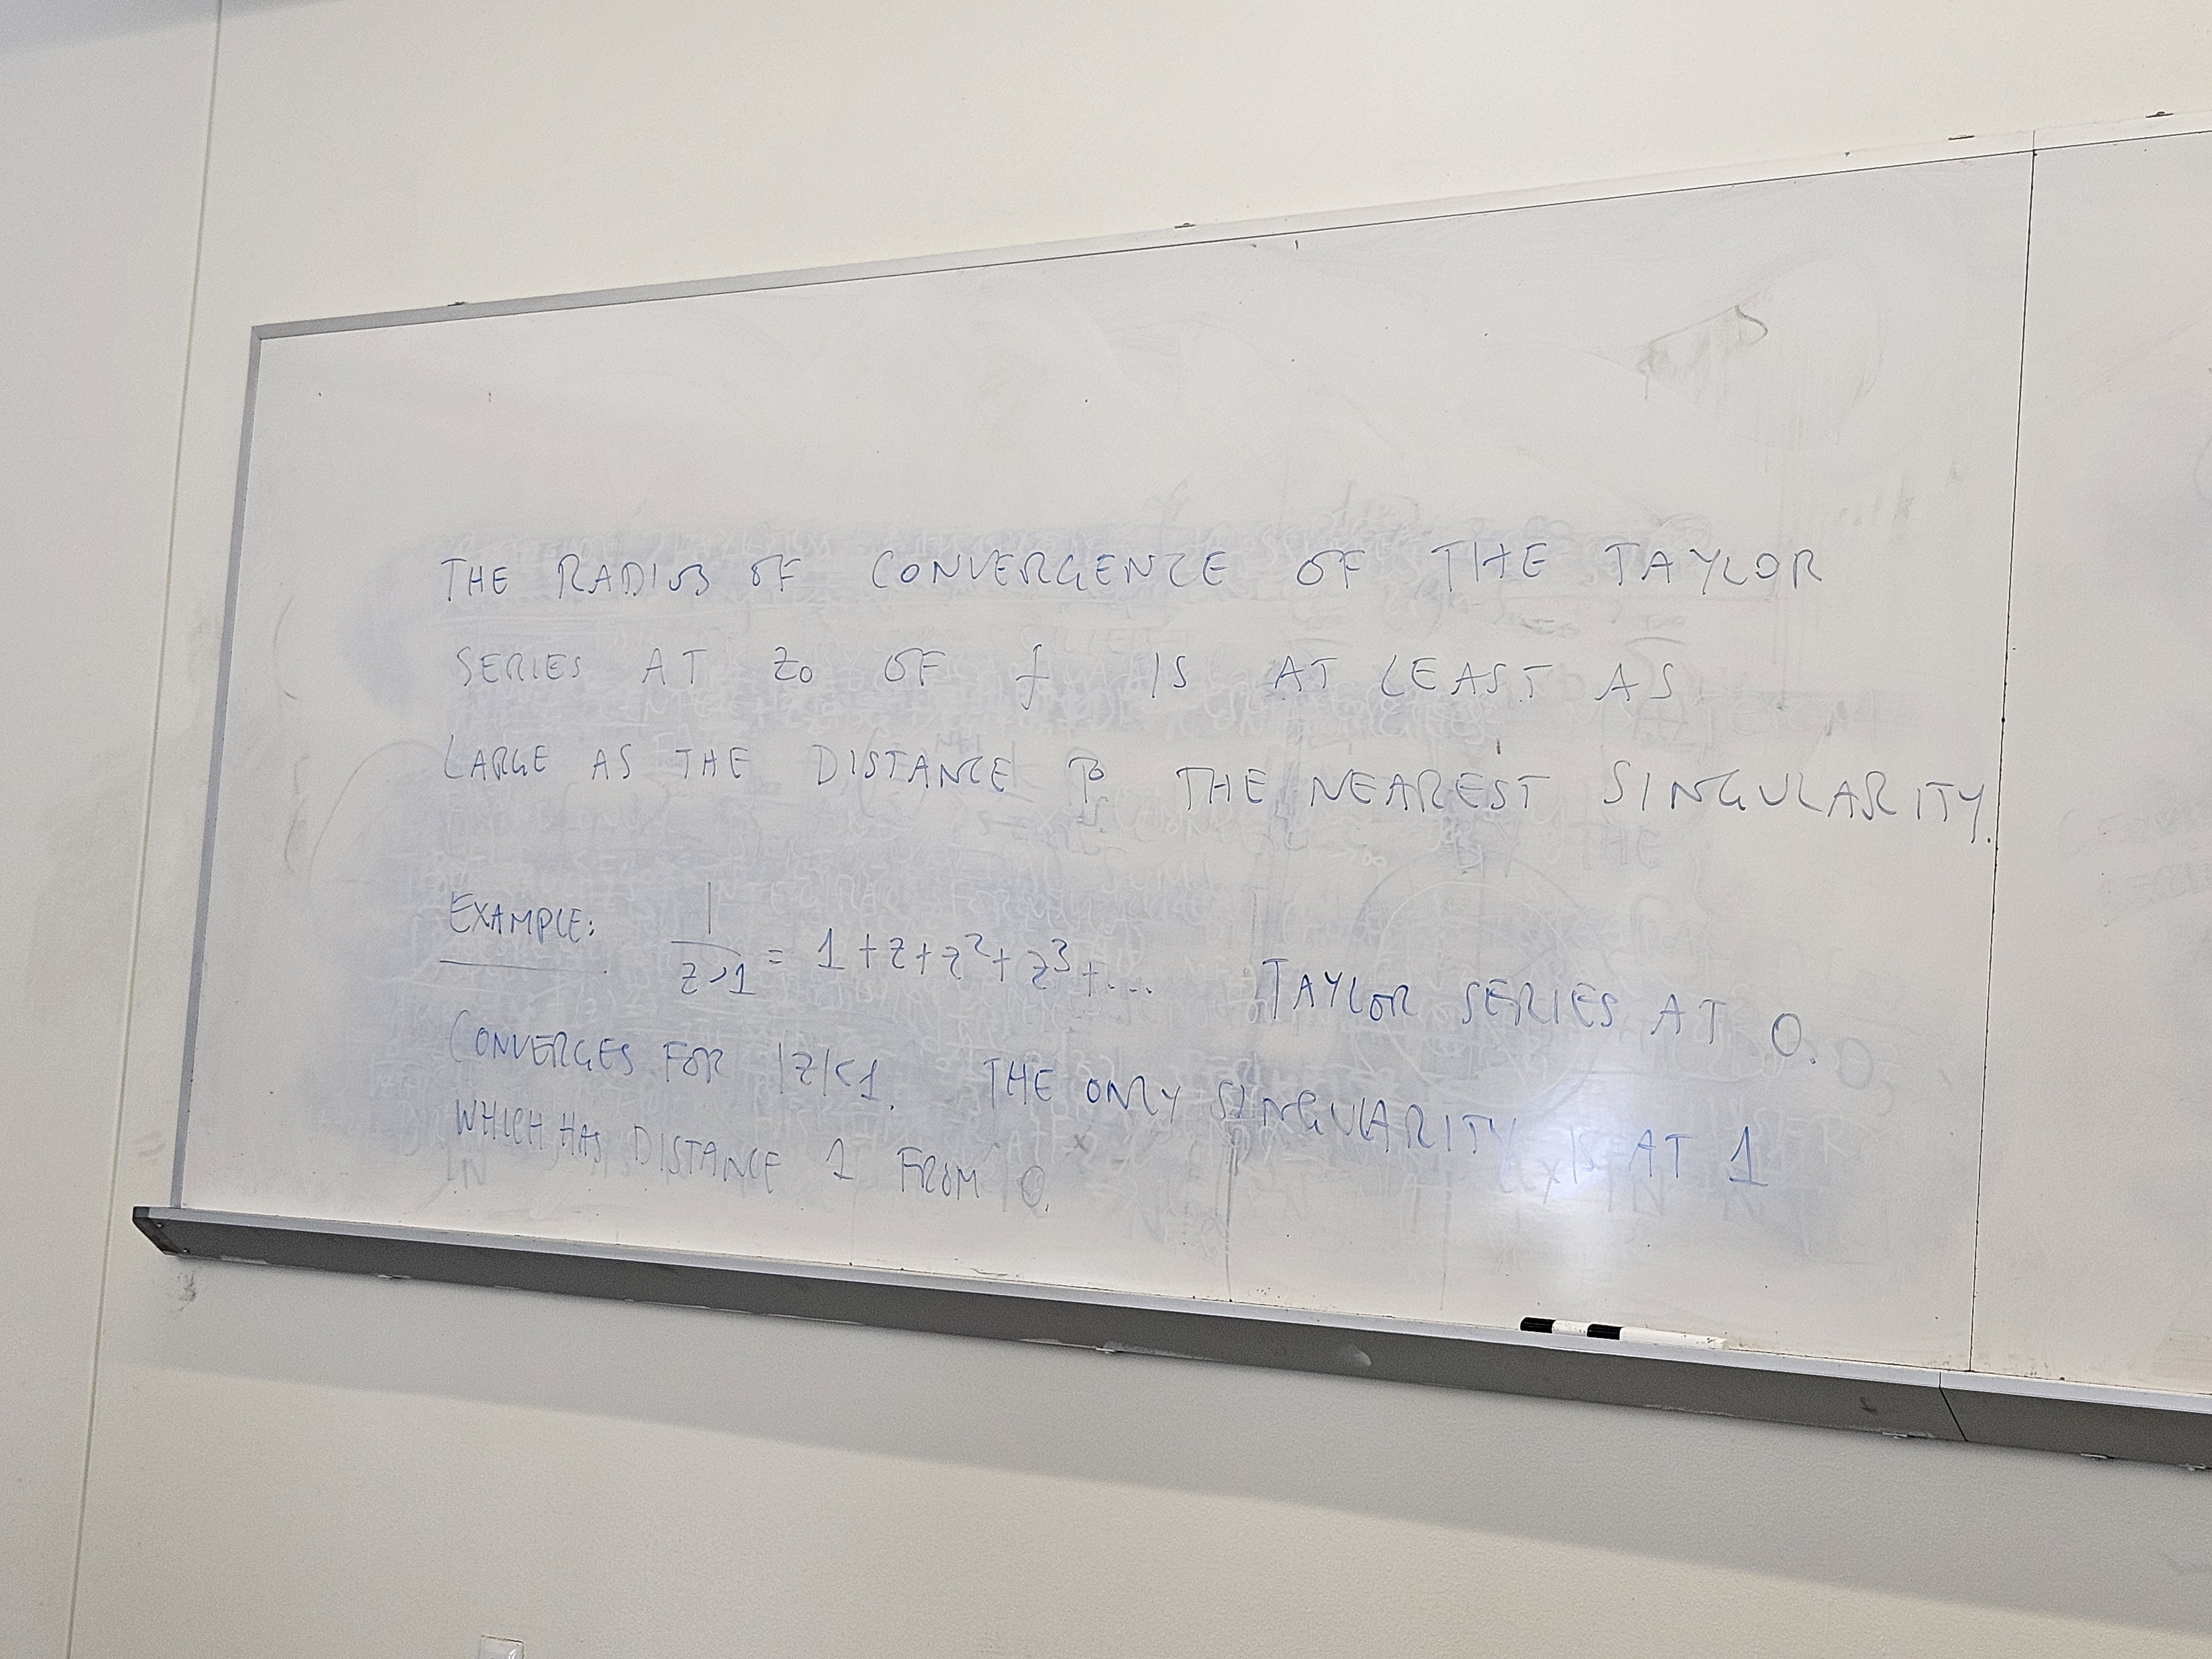 THE RADIUS OF CONVERGENCE OF THE TAYLOR
SERIES AT z₀ OF f IS AT LEAST AS
LARGE AS THE DISTANCE TO THE NEAREST SINGULARITY.
EXAMPLE: 1/(z-1) = 1+z+z²+z³+... TAYLOR SERIES AT 0.
CONVERGES FOR |z|<1. THE ONLY SINGULARITY IS AT 1
WHICH HAS DISTANCE 1 FROM 0.